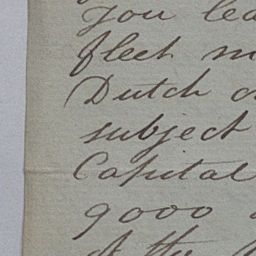 You lea
fleet m
Dutch o
subject
Capital
9000
of the